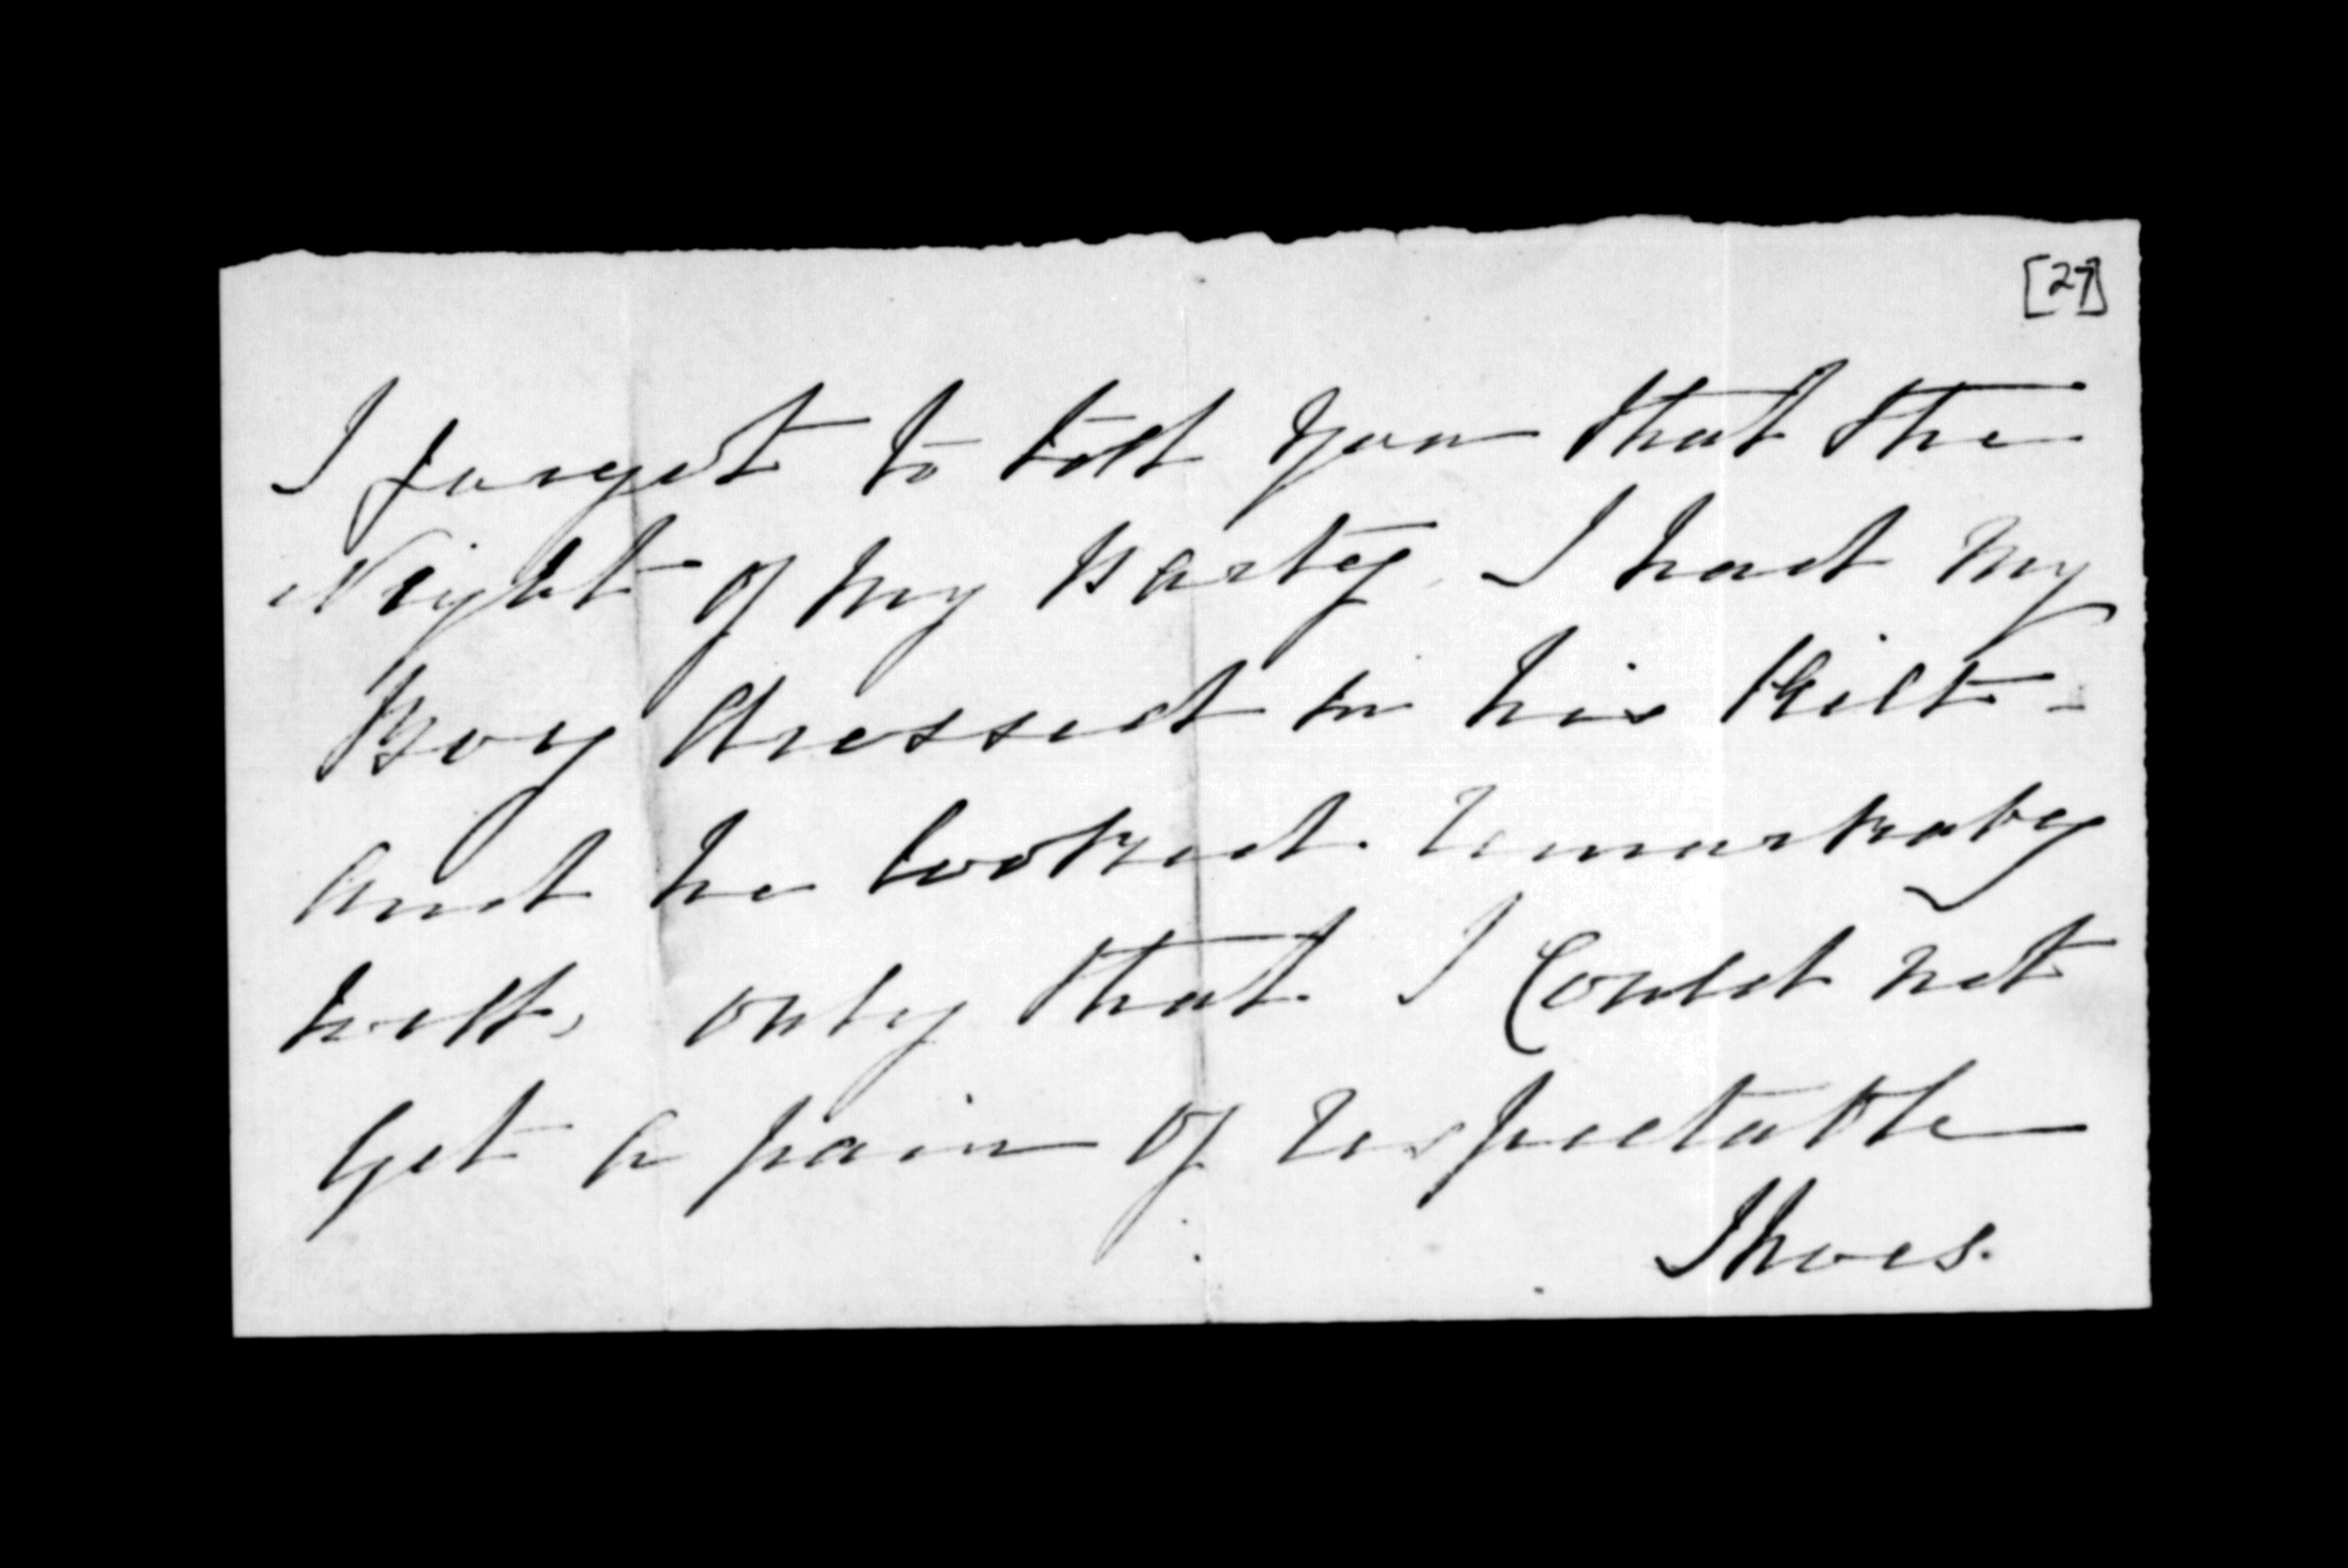 [27]
I forget to tell you that the
Night of my Party, I had my
Boy dressed in his Kilt -
And he looked remarkaby
well, only that I Could not
Get a pair of respectable
Shoes.